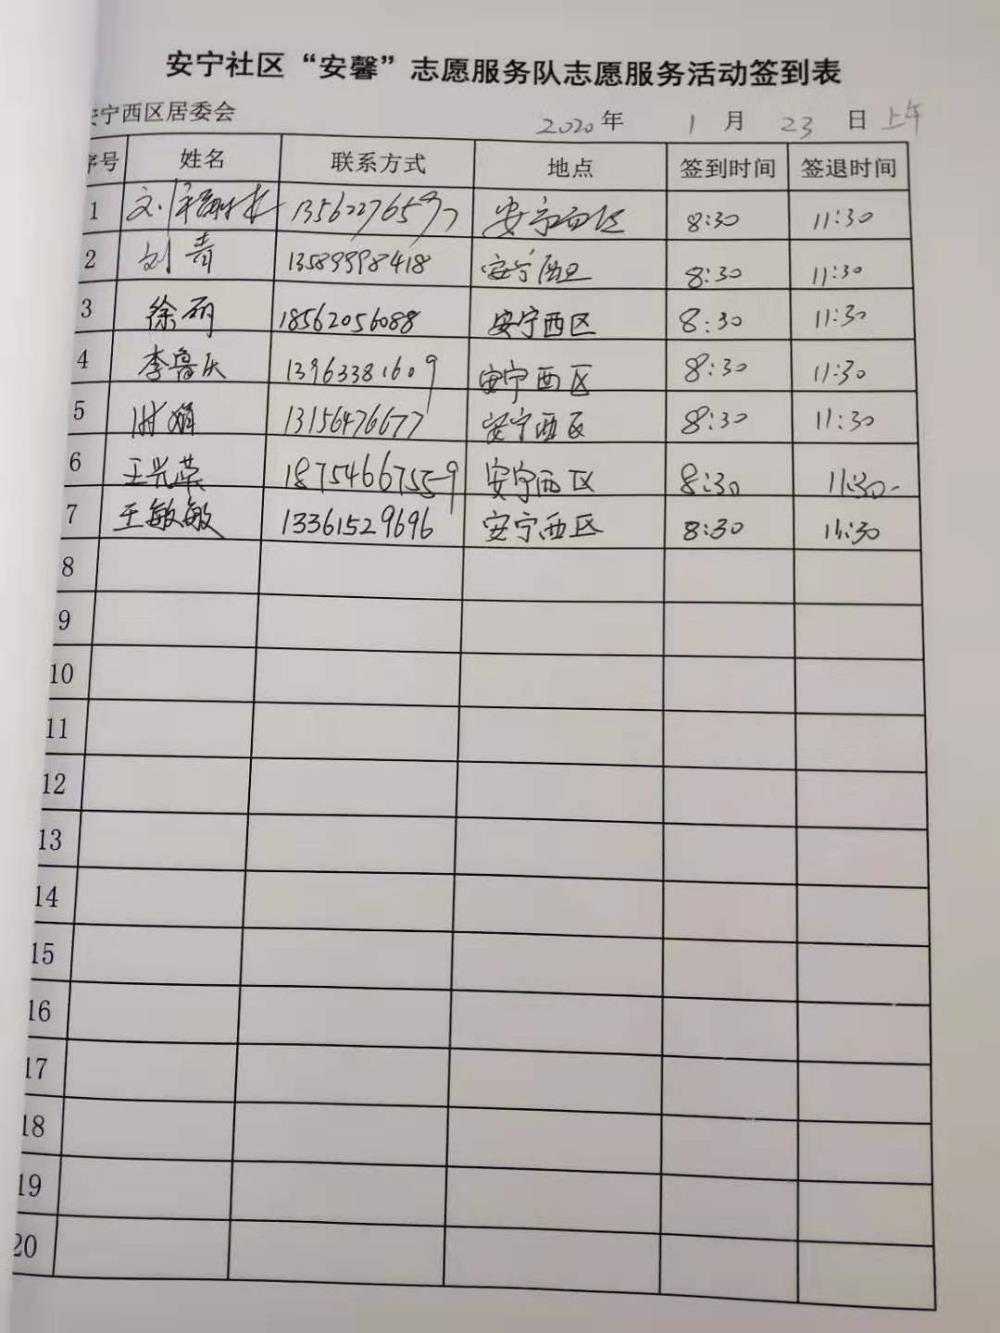 安宁社区“安馨”志愿服务队志愿服务活动签到表
安宁西区居委会 2020年 1月 23日 上午
序号 姓名 联系方式 地点 签到时间 签退时间
1 13562276597 安宁西区 8:30 11:30
2 刘青 13589998418 安宁西区 8:30 11:30
3 徐丽 18562056088 安宁西区 8:30 11:30
4 李鲁庆 13963381609 安宁西区 8:30 11:30
5 13156476677 安宁西区 8:30 11:30
6 王兴荣 18754667559 安宁西区 8:30 11:30
7 王敏敏 13361529696 安宁西区 8:30 11:30
8
9
10
11
12
13
14
15
16
17
18
19
20